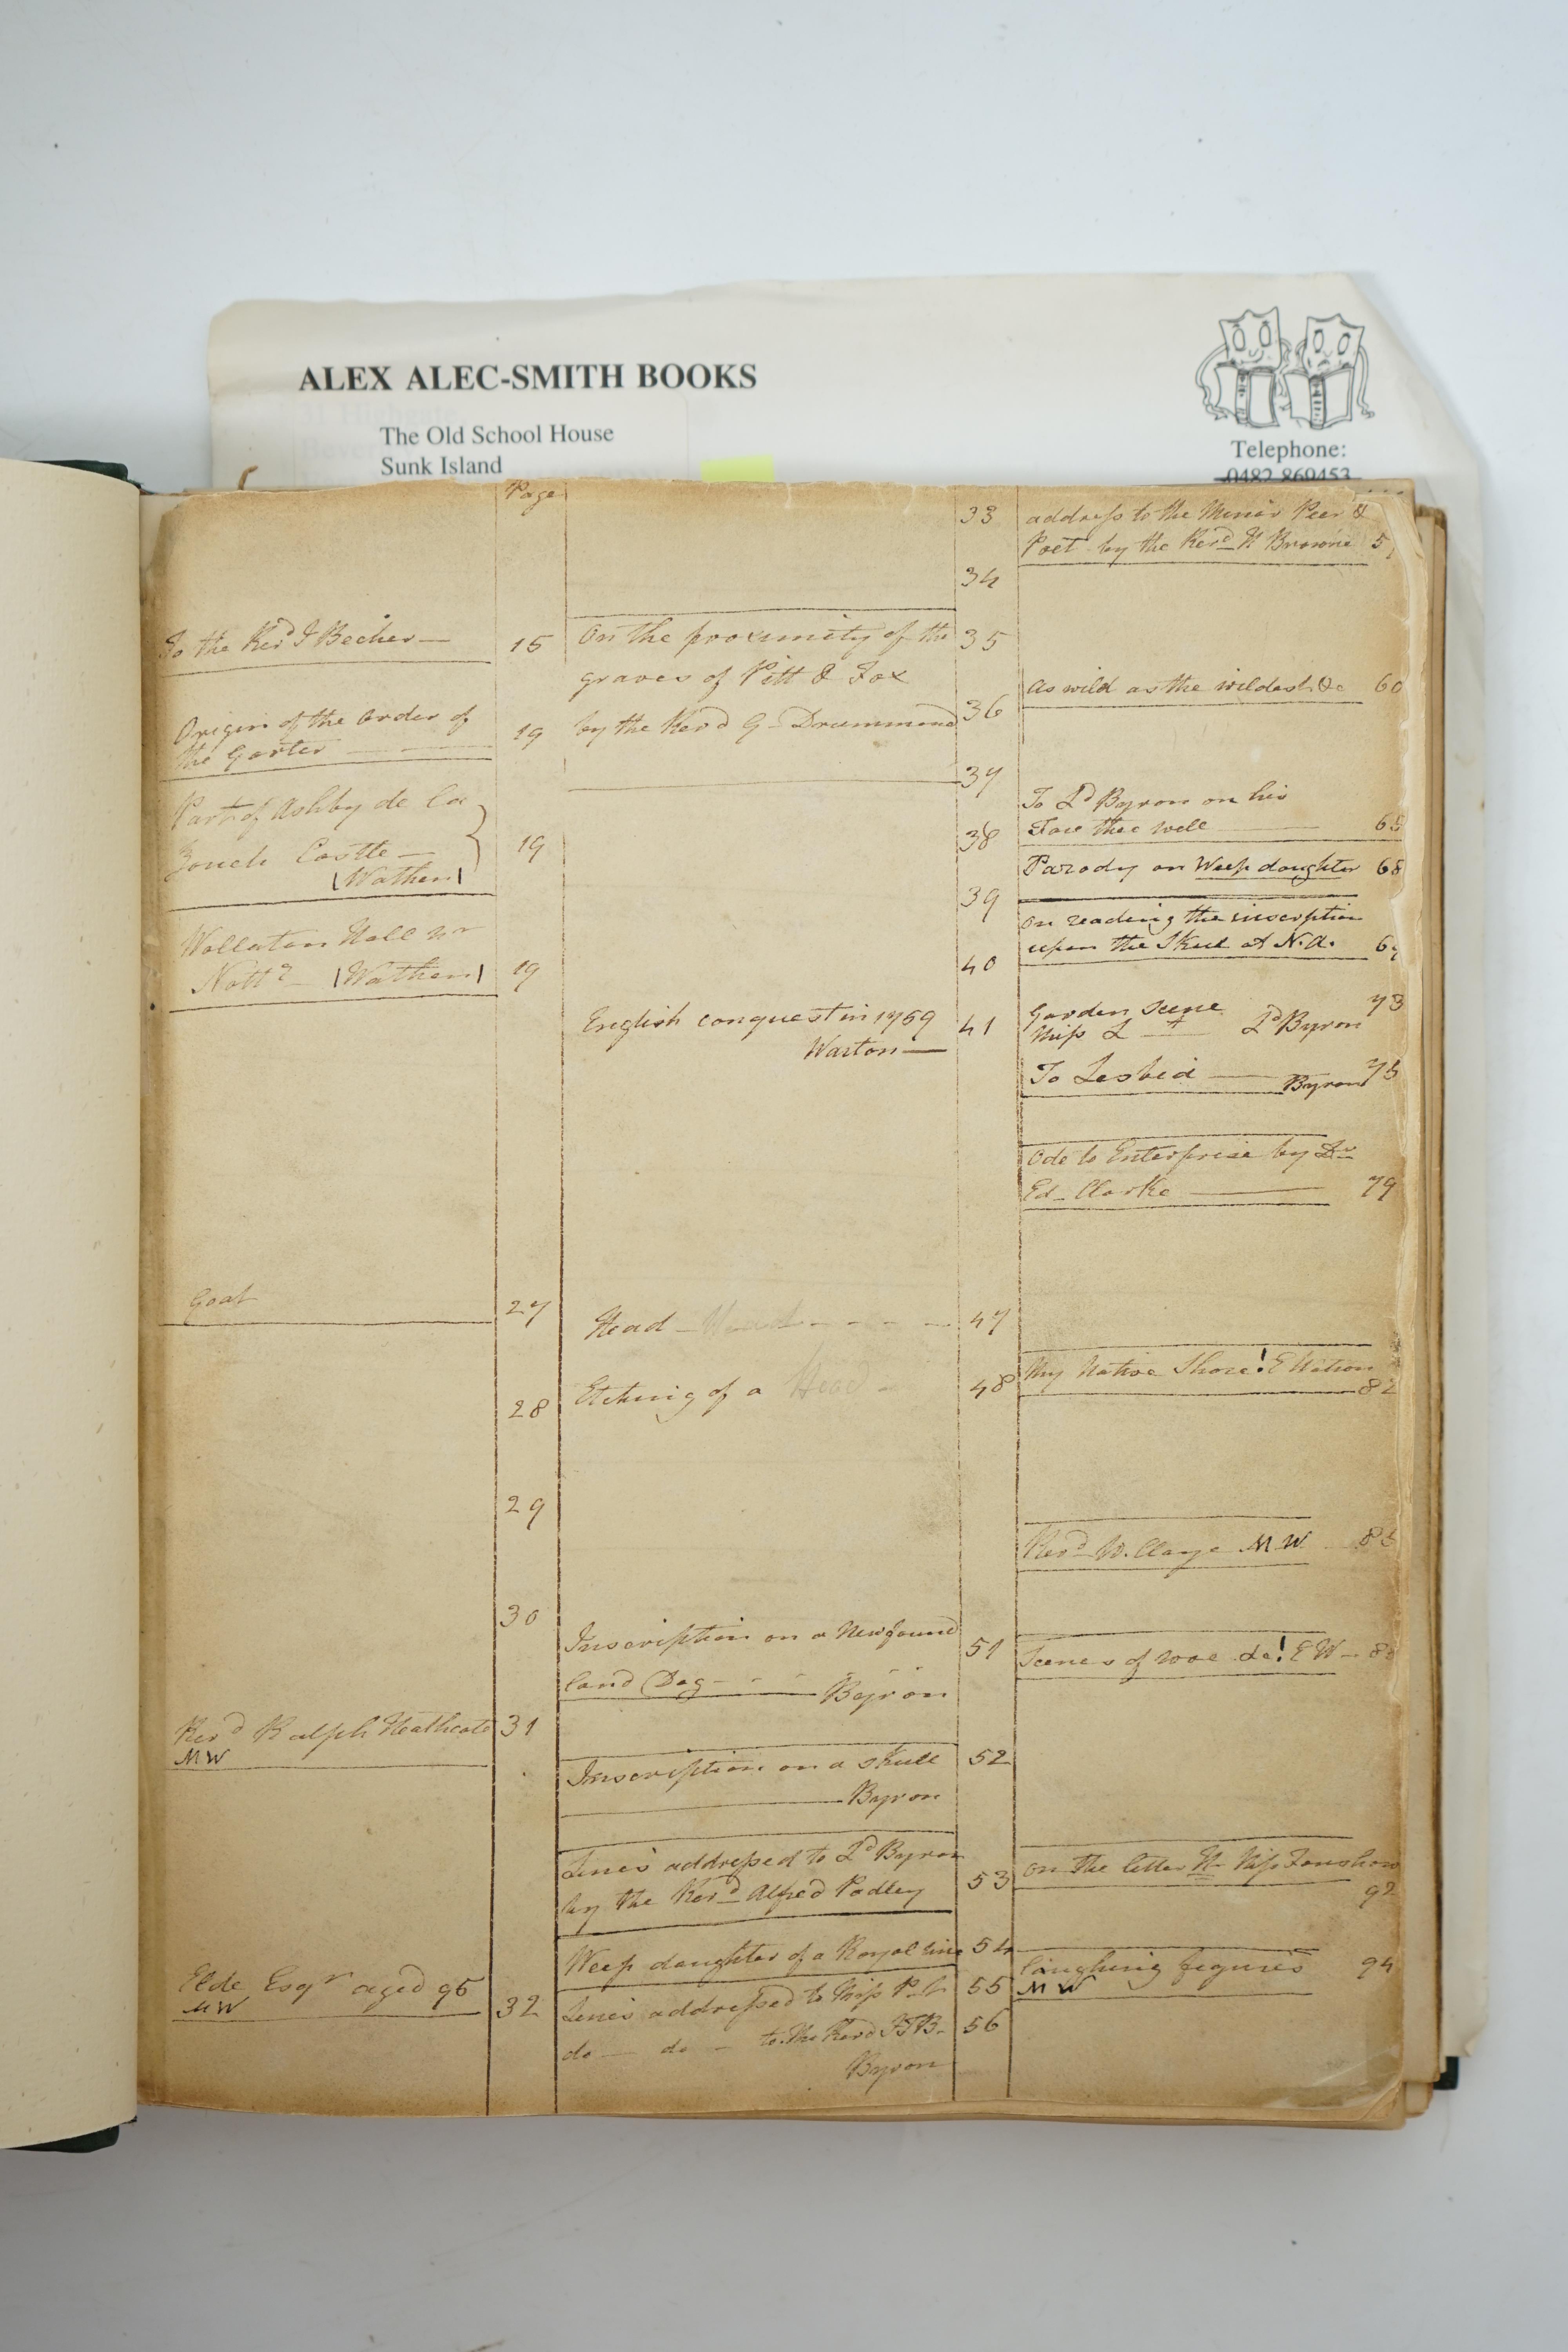 ALEX ALEC-SMITH BOOKS
The Old School House
Sunk Island
Telephone:
0482 869453
Page
To the Revd J Becher — 15
Origin of the Order of
the Garter 19
Part of Ashby de la
Zouch Castle — 19
(Wathen)
Wollaton Hall nr
Nottm (Wathen) 19
Goat 27
28
29
30
Revd Ralph Heathcote 31
MW
Elde Esqr aged 95
MW 32
33
34
On the proximity of the 35
graves of Pitt & Fox
by the Revd G- Drummond 36
37
38
39
40
English conquest in 1759 41
Warton —
Head - Head - - - - 47
Etching of a Head 48
Inscription on a Newfound
land Dog - - - Byron 51
Inscription on a Skull 52
Byron
Lines addressed to Ld Byron
by the Revd Alfred Padley 53
Weep daughter of a Royal line 54
Lines addressed to Miss P. 55
do — do — to the Revd J T B- 56
Byron
address to the Minor Peer &
Poet by the Revd H Browne 5
As wild as the wildest &c 60
To Ld Byron on his
Fare thee well 65
Parody on Weep daughter 68
On reading the inscription
upon the Skull at N.A. 6
Garden Scene 73
Miss L Ld Byron
To Lesbia — Byron 75
Ode to Enterprise by Dr
Ed- Clarke 79
My Native Shore! E Watson
82
Revd W. Claye MW 8
Scenes of woe &c! E W — 8
On the letter H- Miss Fanshaw
92
laughing figures 94
MW